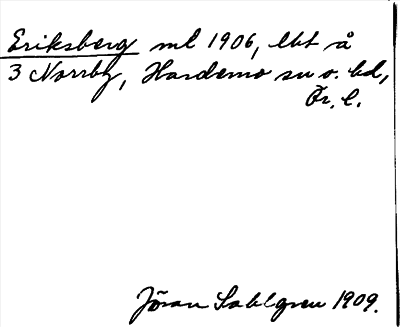 Eriksberg ml 1906, lht å
3 Norrby, Hardemo sn o. hd,
Ör. l.
Jöran Sahlgren 1909.